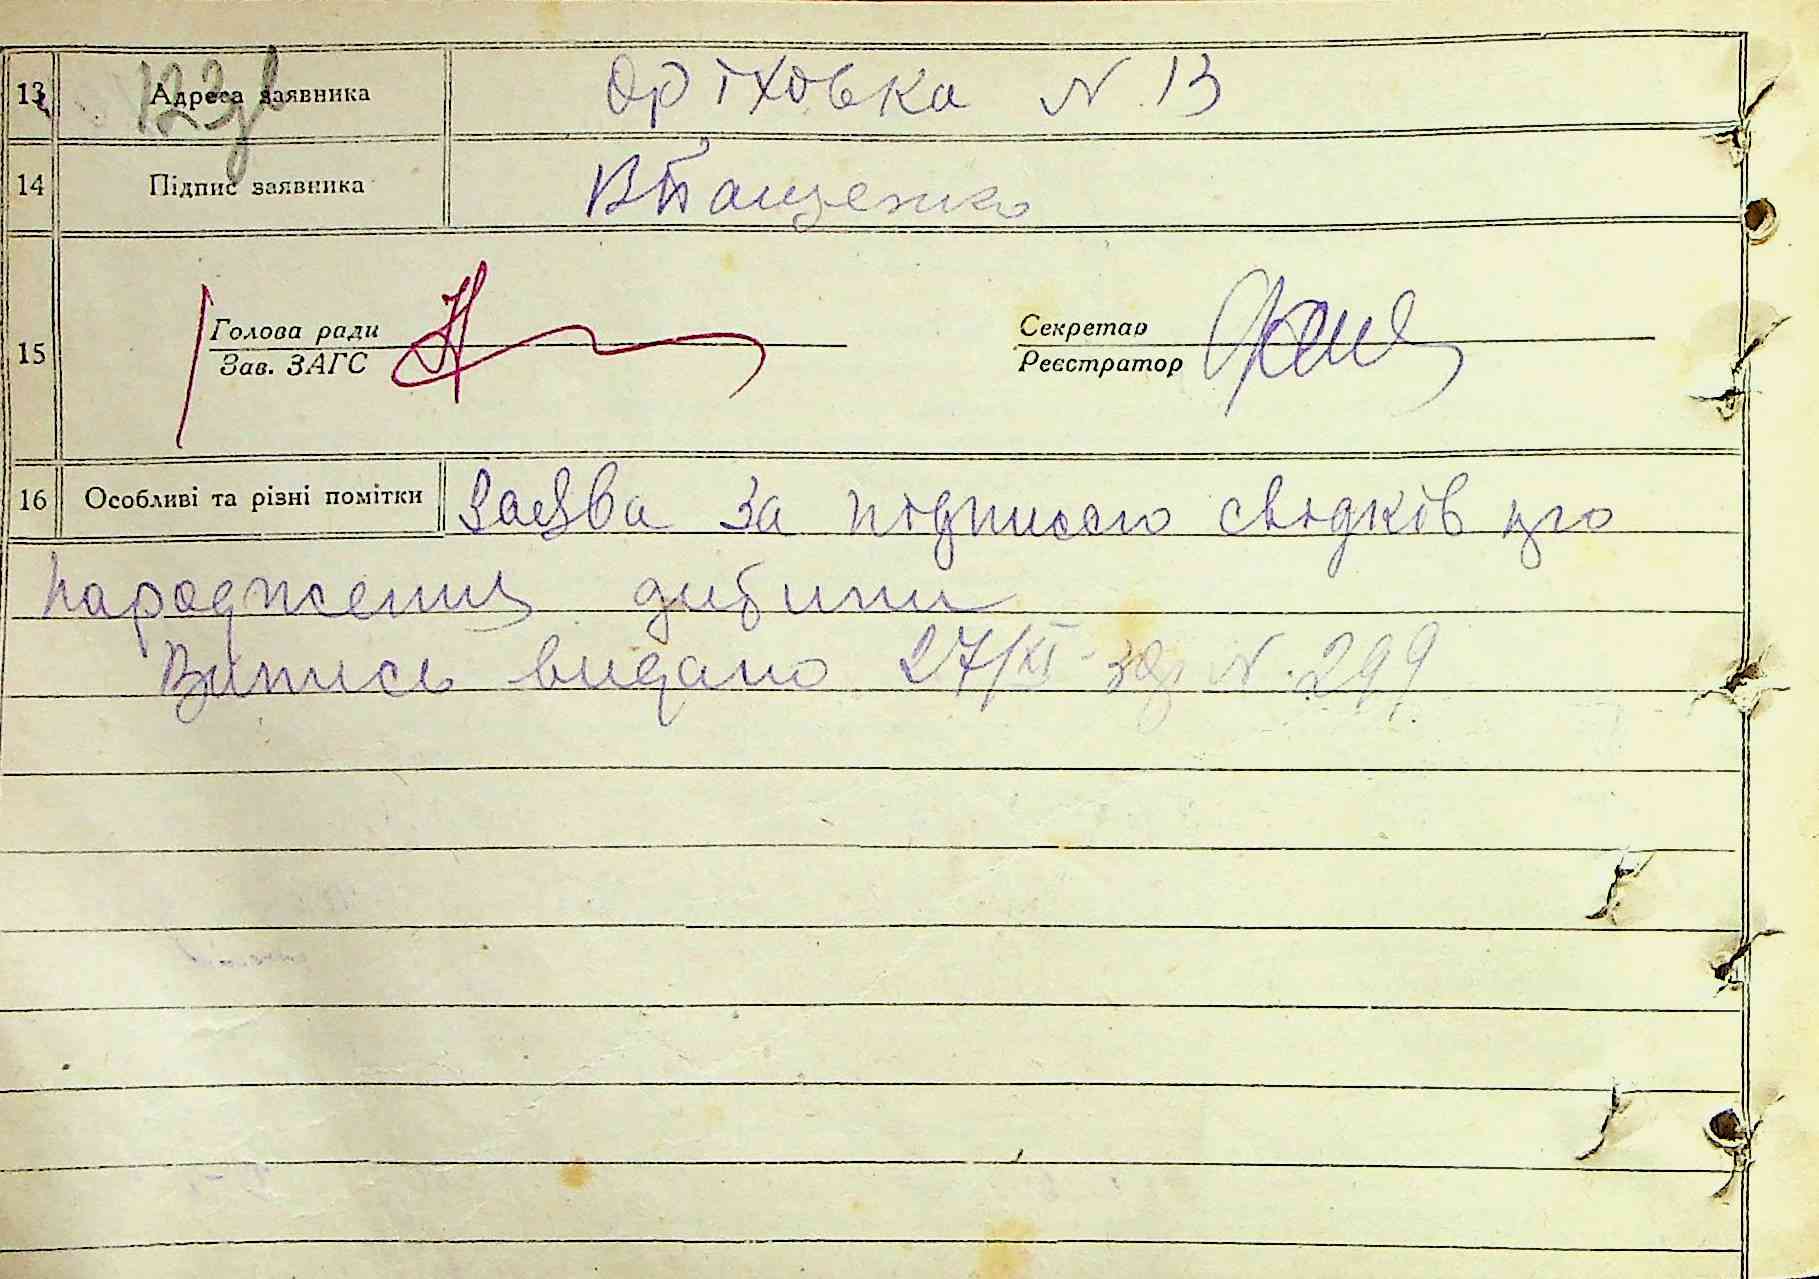 13 Адреса заявника Оріховка N 13
123зв
14 Підпис заявника ВІващенко
15 Голова ради Секретар
Зав. ЗАГС Реєстратор
16 Особливі та різні помітки Заява за підписом свідків про
народження дитини
Випись видано 27/XI-38р N. 299